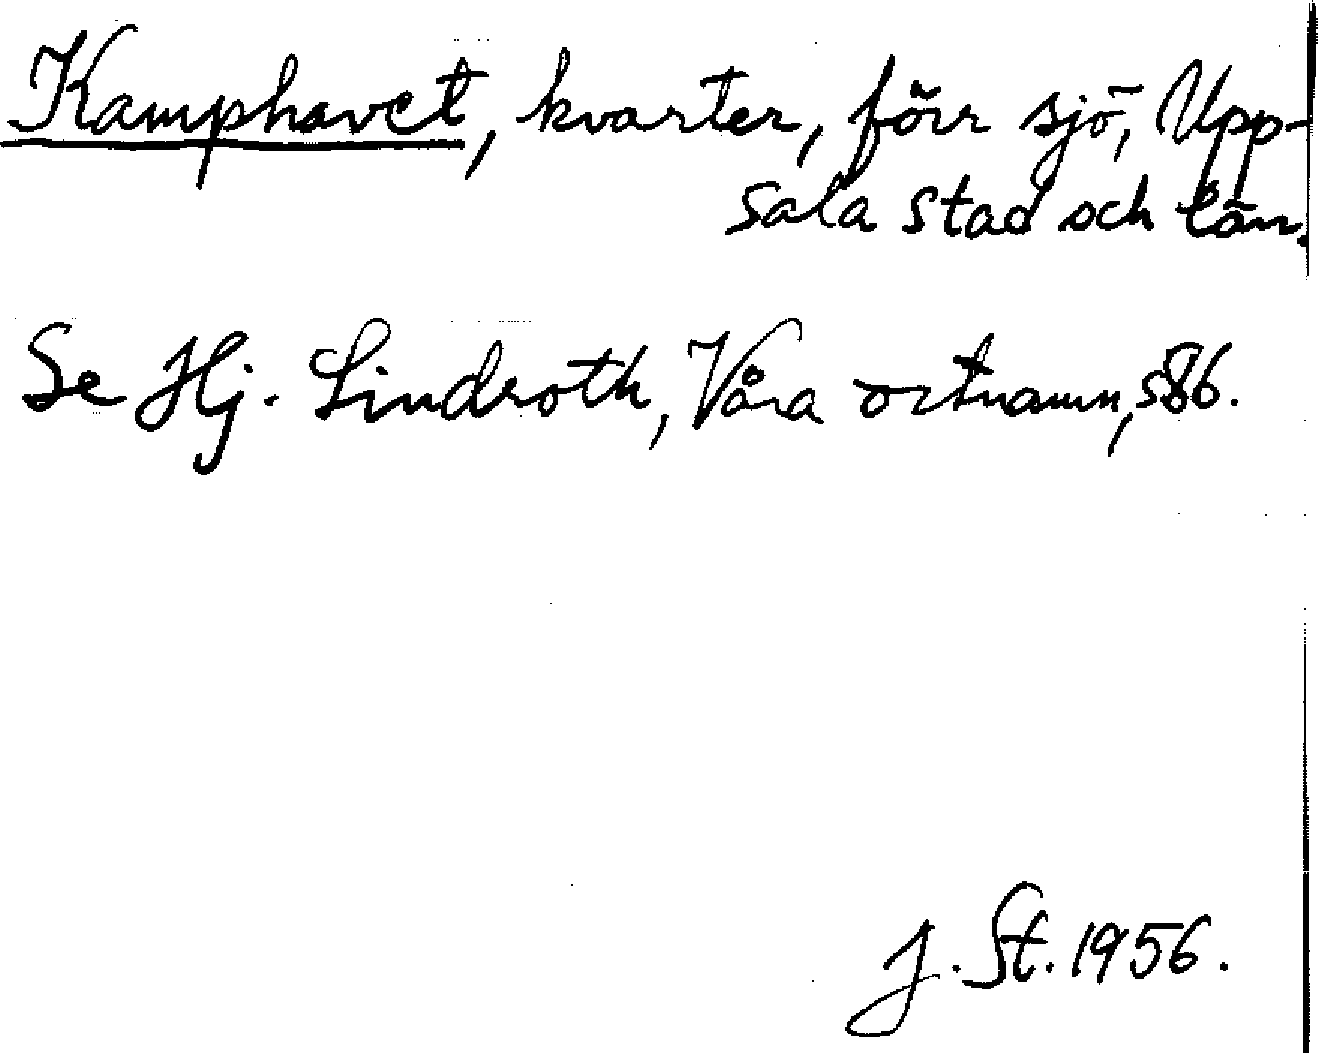 Kamphavet, kvarter, förr sjö, Upp-
sala stad och län.
Se Hj. Lindroth, Våra ortnamn, s86.
J. St. 1956.